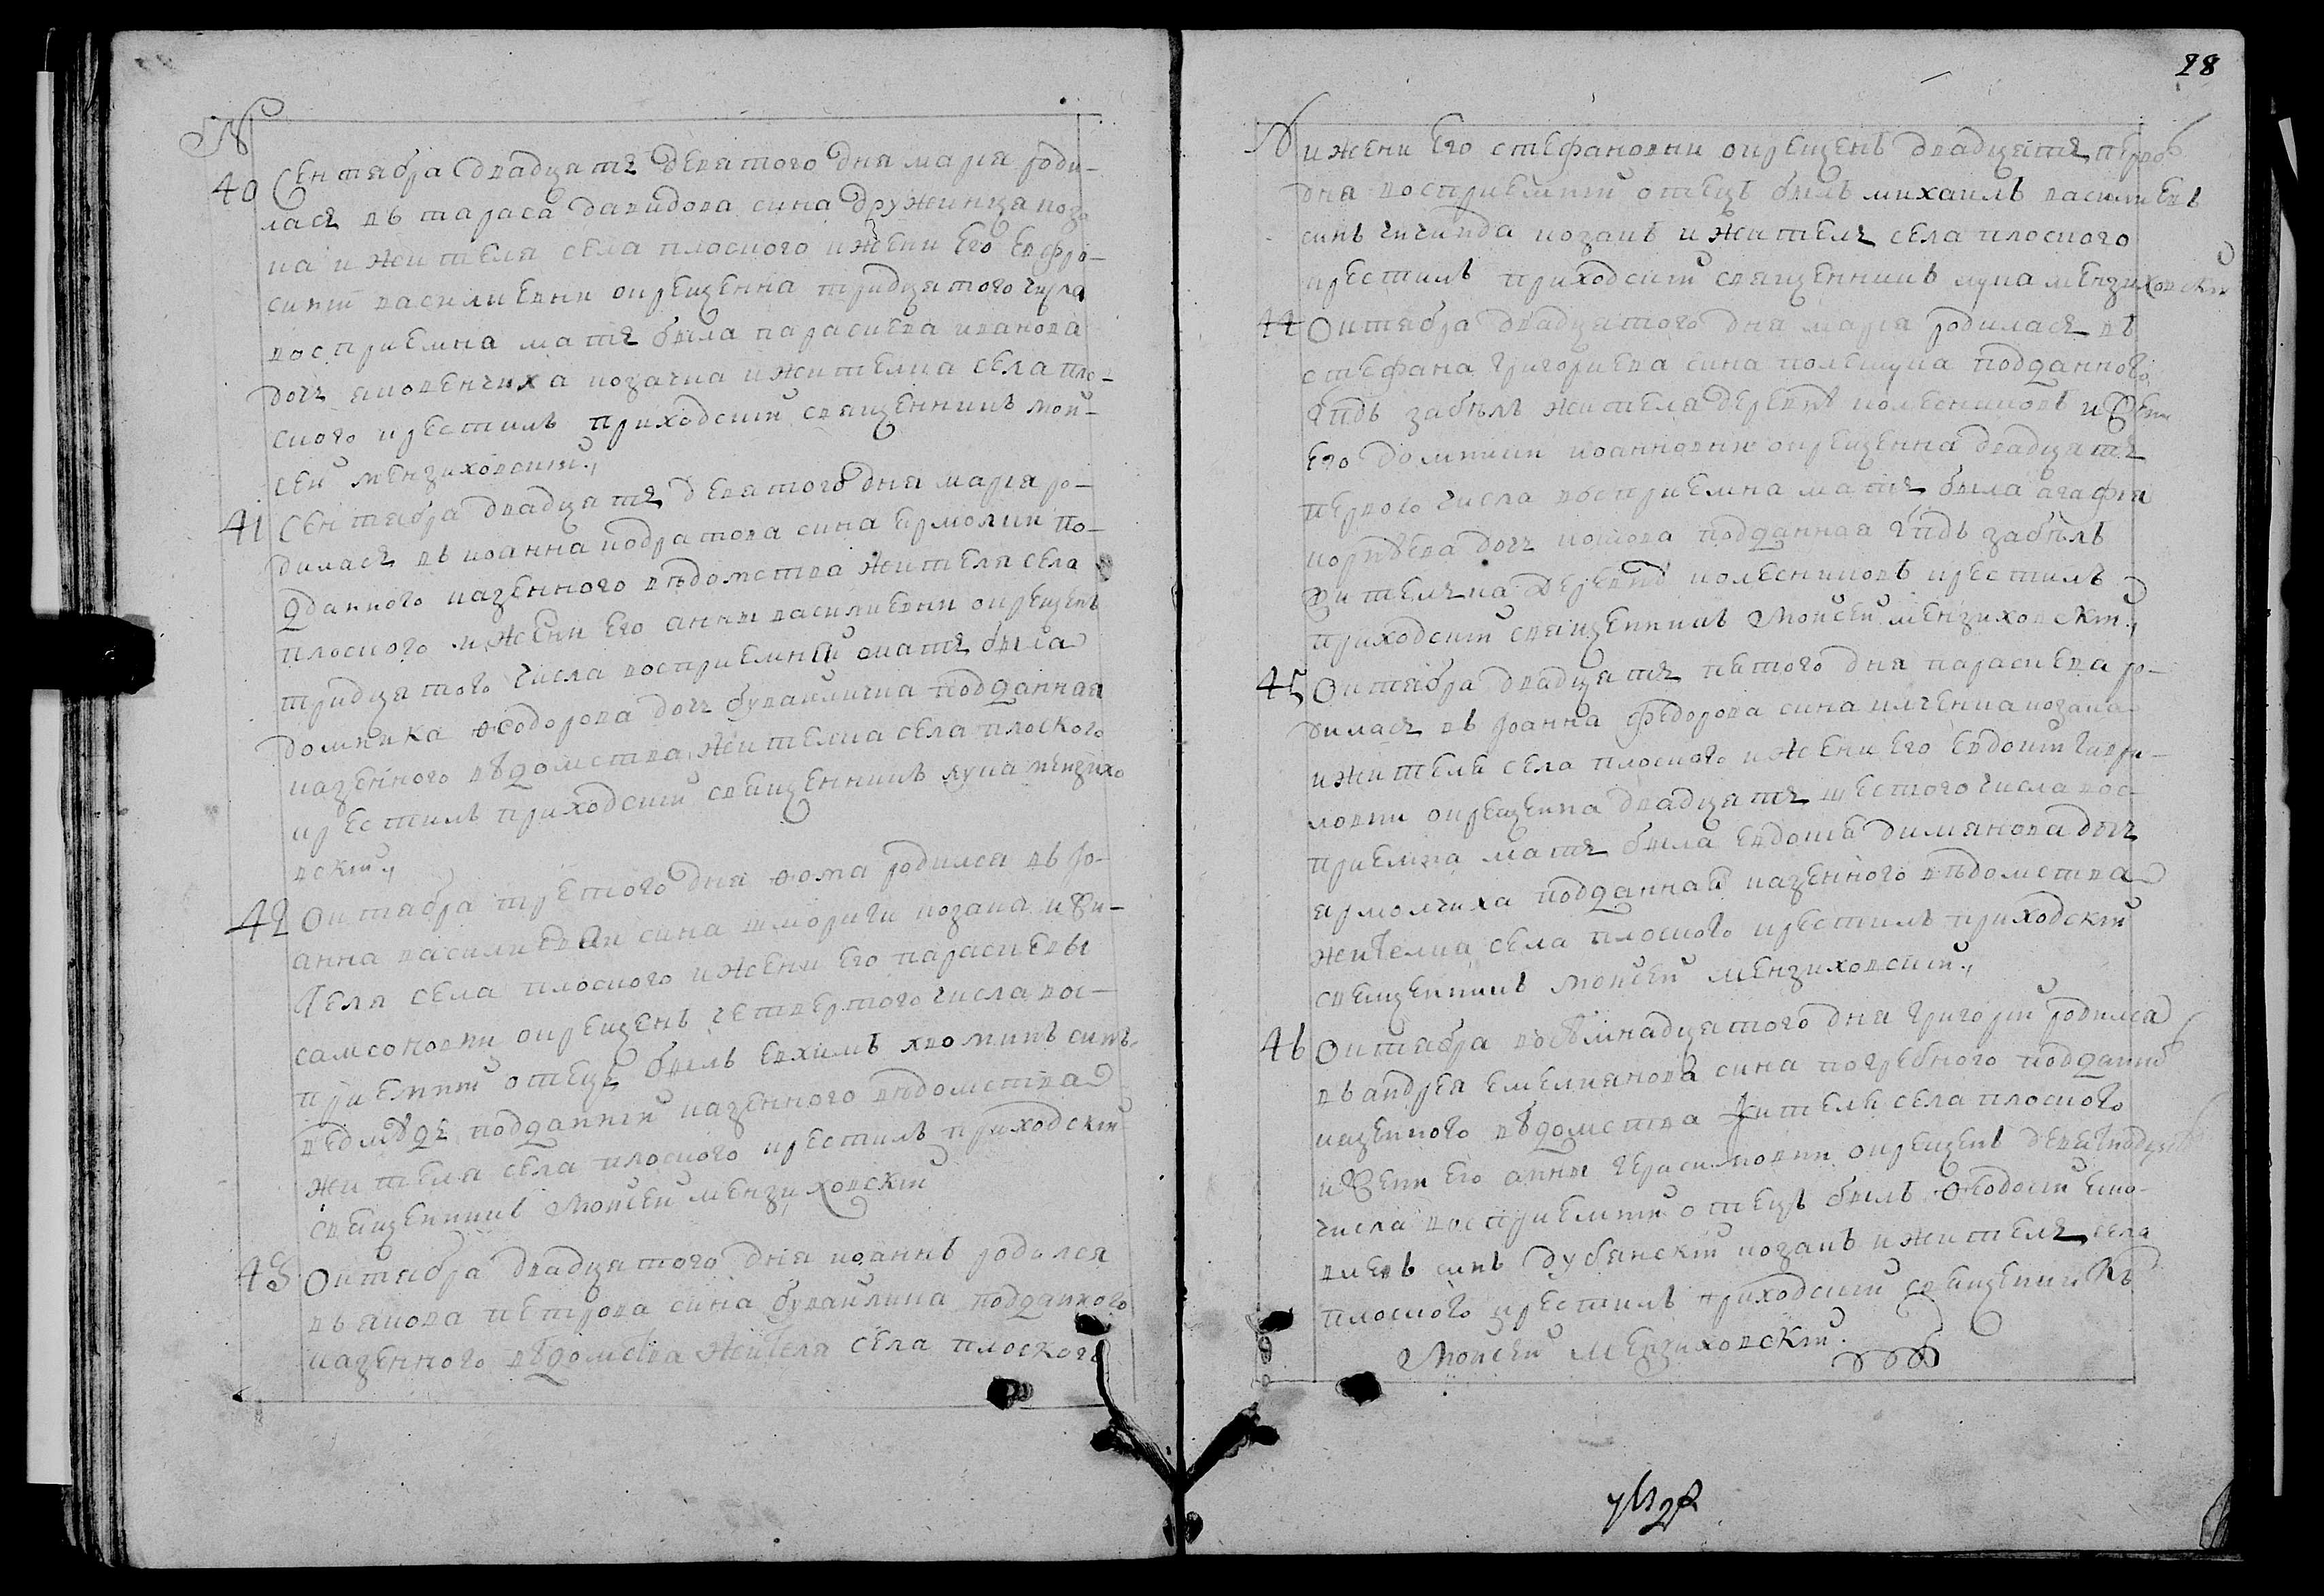 №
40 Сентября двадцать девятого дня марія роди-
лась въ тараса давидова сина дружинца коза
ка и жителя села плоского и жени его евфро-
синіи василиевни окрещенна тридцятого числа
восприемна мать была параскева иванова
дочь яковенчиха козачка и жителка села пло-
ского крестилъ приходскій священникъ мой-
сей мензиховскій,
41 Сентября двадцать девятого дня марія ро-
дилась въ иоанна кодратова сина ермолки по-
дданного казенного вѣдомства жителя села
плоского и жени его анны василиевни окрещенъ
тридцятого числа восприемній мать была
домника ѳеодорова дочь бувайлична подданная
казенного вѣдомства жителка села плоского
крестилъ приходскій священникъ лука мензихо
вскій,
42 Октября третого дня ѳома родился въ іо-
анна василиева сина шмориги козака и жи-
теля села плоского и жени его параскевы
самсоновни окрещенъ четвертого числа вос-
приемній отецъ былъ евхимъ хвоминъ синъ
ведмѣдь подданній казенного вѣдомства
жителя села плоского крестилъ приходскій
священникъ Мойсей мензиховскій
43 Октября двадцятого дня иоаннъ родился
въ якова петрова сина бувайлика подданного
казенного вѣдомства жителя села плоского
28
№
и жени его стефановни окрещенъ двадцять перво
дня восприемній отецъ былъ михаилъ василиевъ
синъ чичинда козакъ и житель села плоского
крестилъ приходскій священникъ лука мензиховскій
44 Октября двадцятого дня марія родилась въ
стефана григориева сина полещука подданного
забѣлъ жителя деревнѣ колесниковъ и жени
его домникии иоанновни окрещенна двадцять
первого числа восприемна мать была агафия
корнѣева дочь подданная забѣлъ
жителька деревнѣ колесниковъ крестилъ
приходскій священникъ Мойсей мензиховскій,
45 Октября двадцять пятого дня параскева ро-
дилась въ Іоанна федорова сина илченка козака
и жителя села плоского и жени его евдокіи гаври-
ловни окрещенна двадцять шестого числа вос-
приемна мать была евдокия димянова дочь
ярмолчиха подданная казенного вѣдомства
жителка села плоского крестилъ приходскій
священникъ Мойсей мензиховскій,
46 Октября восѣмнадцятого дня григорій родился
въ андрея емелиянова сина погребного подданно
казенного вѣдомства жителя села плоского
и жени его анны герасимовни окрещенъ девятнадцято
числа восприемній отецъ былъ ѳеодосій яко-
влевъ синъ дубянскій козакъ и житель села
плоского крестилъ приходскій священникъ
Мойсей мензиховскій.